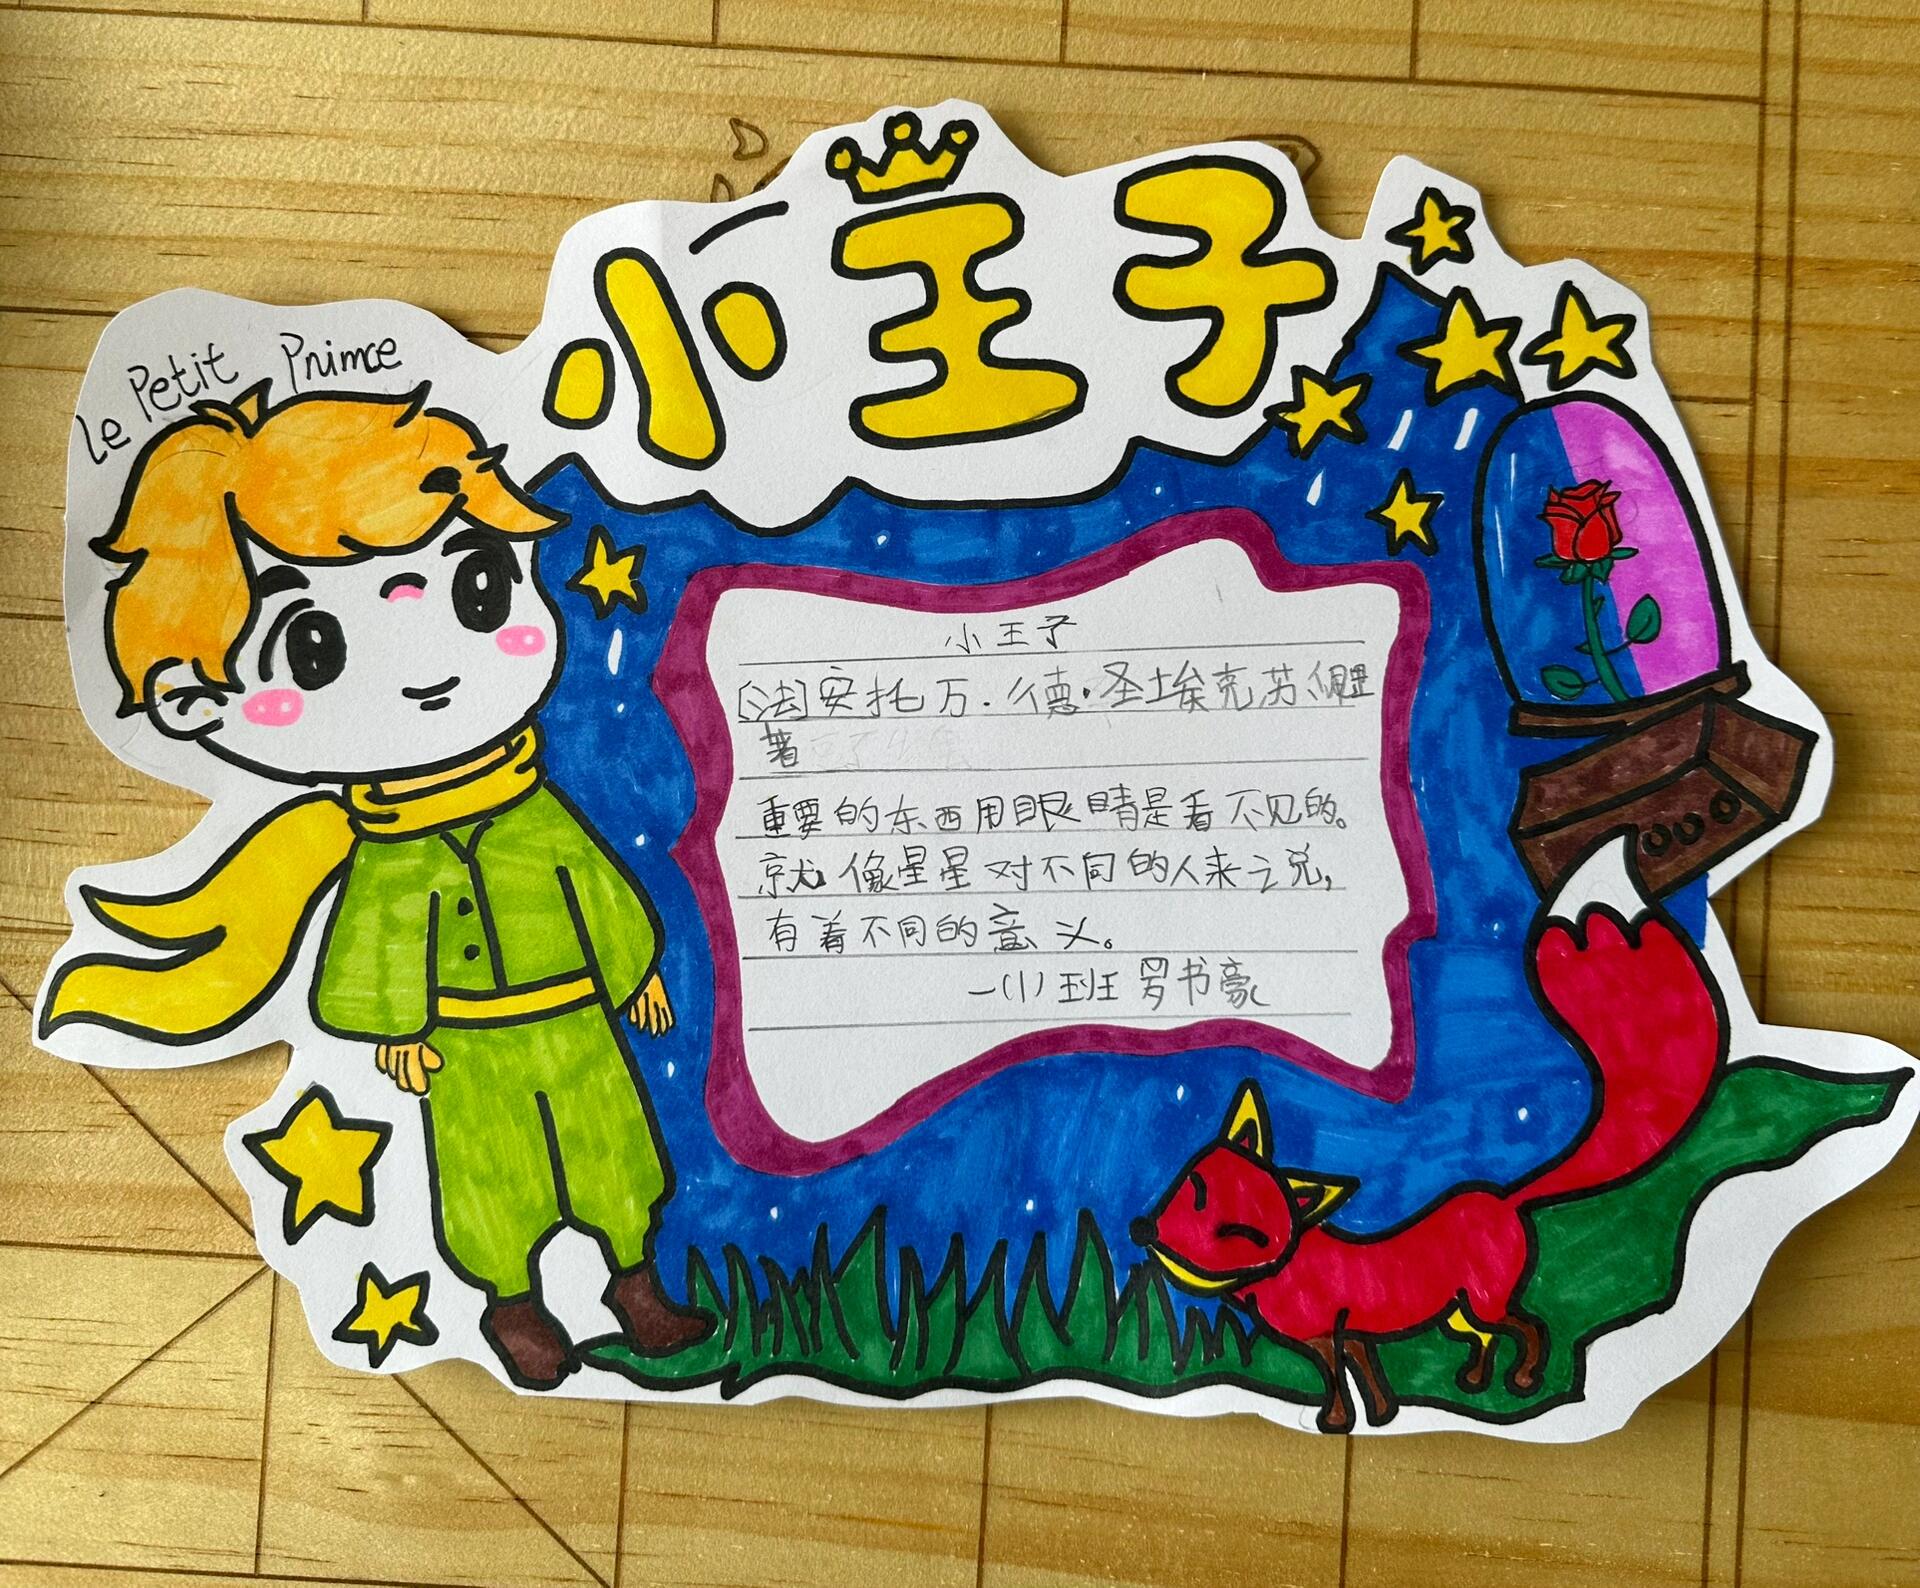 小王子
Le Petit Prince
小王子
[法]安托万·德·圣埃克苏佩里
著
重要的东西用眼睛是看不见的。
就像星星对不同的人来说，
有着不同的意义。
一(1)班 罗书豪